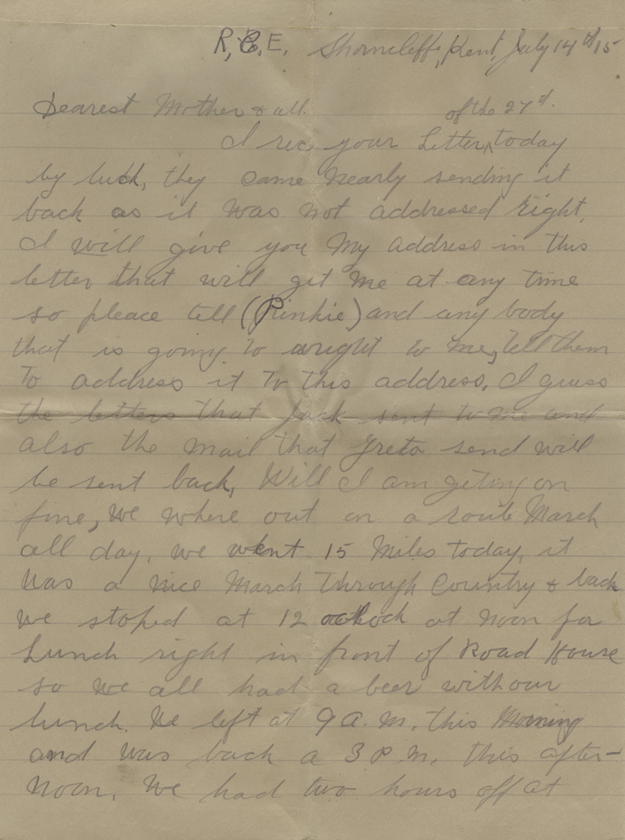 R.C.E. Shorncliffe, Kent. July 14th 15
Dearest Mother & all. of the 27d.
I rec your Letter, today
by luck, they came nearly sending it
back as it was not addressed right.
I will give you My address in this
letter that will get me at any time
so pleace tell (Pinkie) and any body
that is going to wright to me, tell them
To address it to this address. I guess
the letters that Jack sent to me and
also the mail that Greta send will
be sent back, Will I am geting on
fine, we where out on a route March
all day, we went 15 Miles today, it
was a nice March through Country & back
we stoped at 12 oclock at noon for
Lunch right in front of Road House
so we all had a beer with our
lunch. We left at 9 a.m. this Morning
and was back a 3 P.M. this after-
noon. We had two hours off at